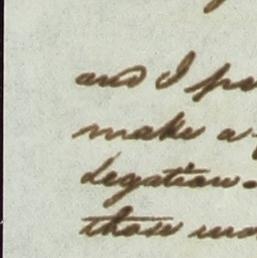 and I
make a
legation
those